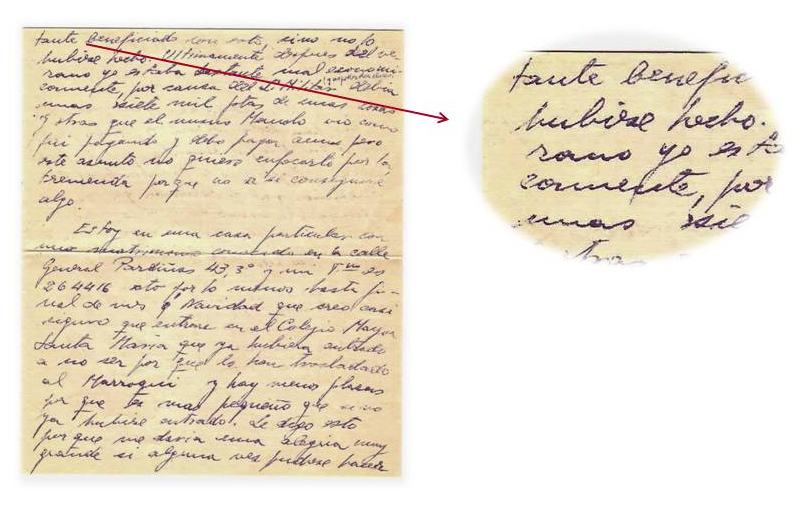 tante beneficiado con esto, sino no lo
hubiese hecho. Ultimamente, despues del ve-
rano yo estaba bastante mal economi-
camente, por causa del S. Militar debia
unas siete mil ptas de unas cosas
y otras que el mismo Manolo vio como
fui pagando y debo pagar aun pero
este asunto no quiero enfocarlo por la
tremenda porque no se si conseguiré
algo.
Estoy en una casa particular con
un matrimonio en la calle
General Pardiñas 43, 3º y mi Tno es
264416 esto por lo menos hasta fi-
nal de mes o Navidad que creo casi
seguro que entrare en el Colegio Mayor
Santa Maria que ya hubiera entrado
a no ser por que lo han trasladado
al Marroqui y hay menos plazas
por que es mas pequeño que sino
ya hubiese entrado. Le digo esto
porque me daria una alegria muy
grande si alguna vez pudiese hacer
tante benefic
hubiese hecho.
rano yo esta
camente, por
unas sie
otras